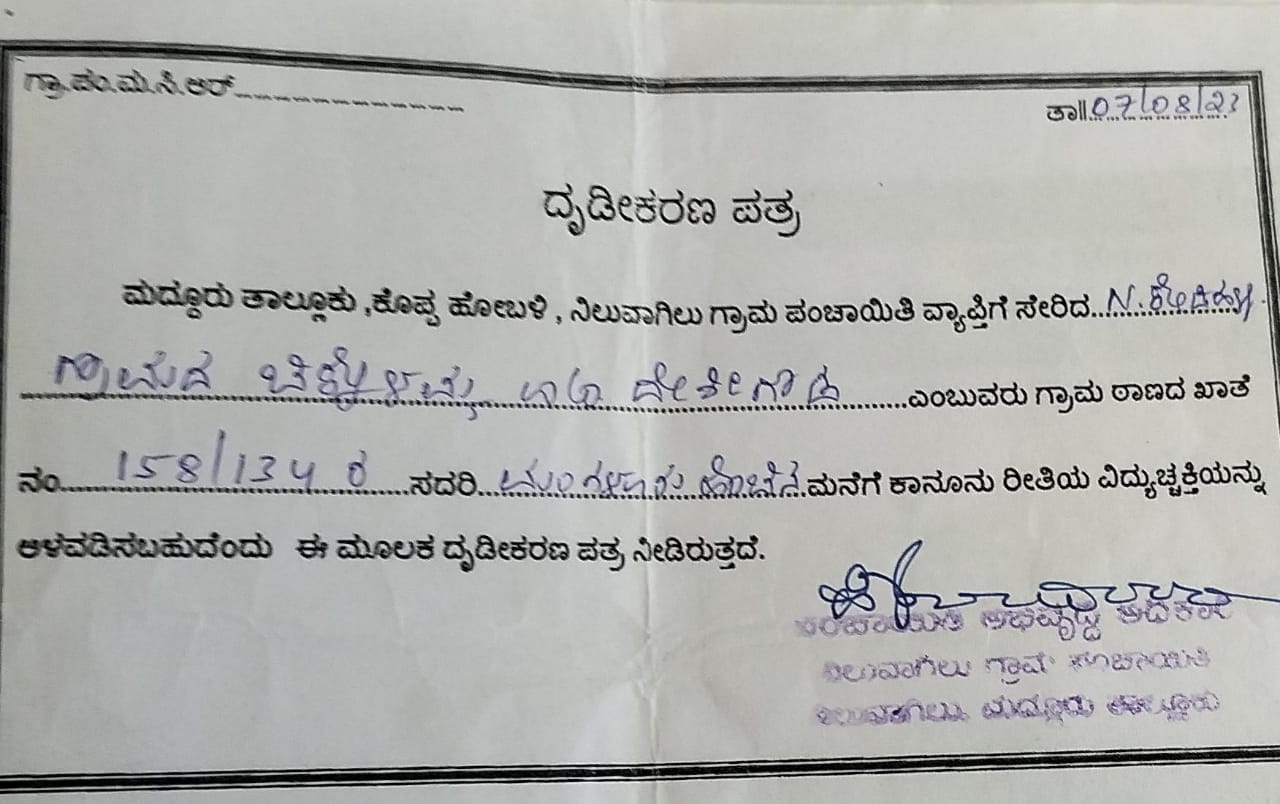 ಗ್ರಾ.ಪಂ.ಮ.ಸಿ.ಆರ್
ತಾ||07/08/23
ದೃಡೀಕರಣ ಪತ್ರ
ಮದ್ದೂರು ತಾಲ್ಲೂಕು ,ಕೊಪ್ಪ ಹೋಬಳಿ , ನಿಲುವಾಗಿಲು ಗ್ರಾಮ ಪಂಚಾಯಿತಿ ವ್ಯಾಪ್ತಿಗೆ ಸೇರಿದ N.
ಗ್ರಾಮದ ದೇಶೀಗೌಡ ಎಂಬುವರು ಗ್ರಾಮ ಠಾಣದ ಖಾತೆ
ನಂ 158/134 ರ ಸದರಿ ಮಂಗಳೂರು ಹೆಂಚಿನ ಮನೆಗೆ ಕಾನೂನು ರೀತಿಯ ವಿದ್ಯುಚ್ಚಕ್ತಿಯನ್ನು
ಆಳವಡಿಸಬಹುದೆಂದು ಈ ಮೂಲಕ ದೃಡೀಕರಣ ಪತ್ರ ನೀಡಿರುತ್ತದೆ.
ಪಂಚಾಯಿತಿ ಅಭಿವೃದ್ಧಿ ಅಧಿಕಾರಿ
ನಿಲುವಾಗಿಲು ಗ್ರಾಮ ಪಂಚಾಯಿತಿ
ನಿಲುವಾಗಿಲು, ಮದ್ದೂರು ತಾಲ್ಲೂಕು